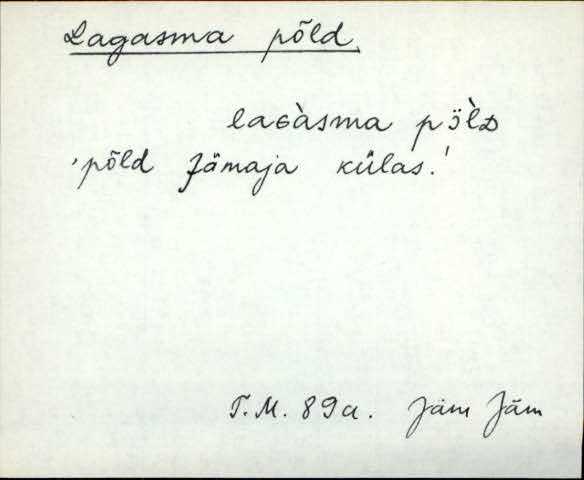 Lagasma põld
laɢàsma pɔ̈̀lᴅ
'põld Jämaja külas.'
T.M. 89a. Jäm Jäm